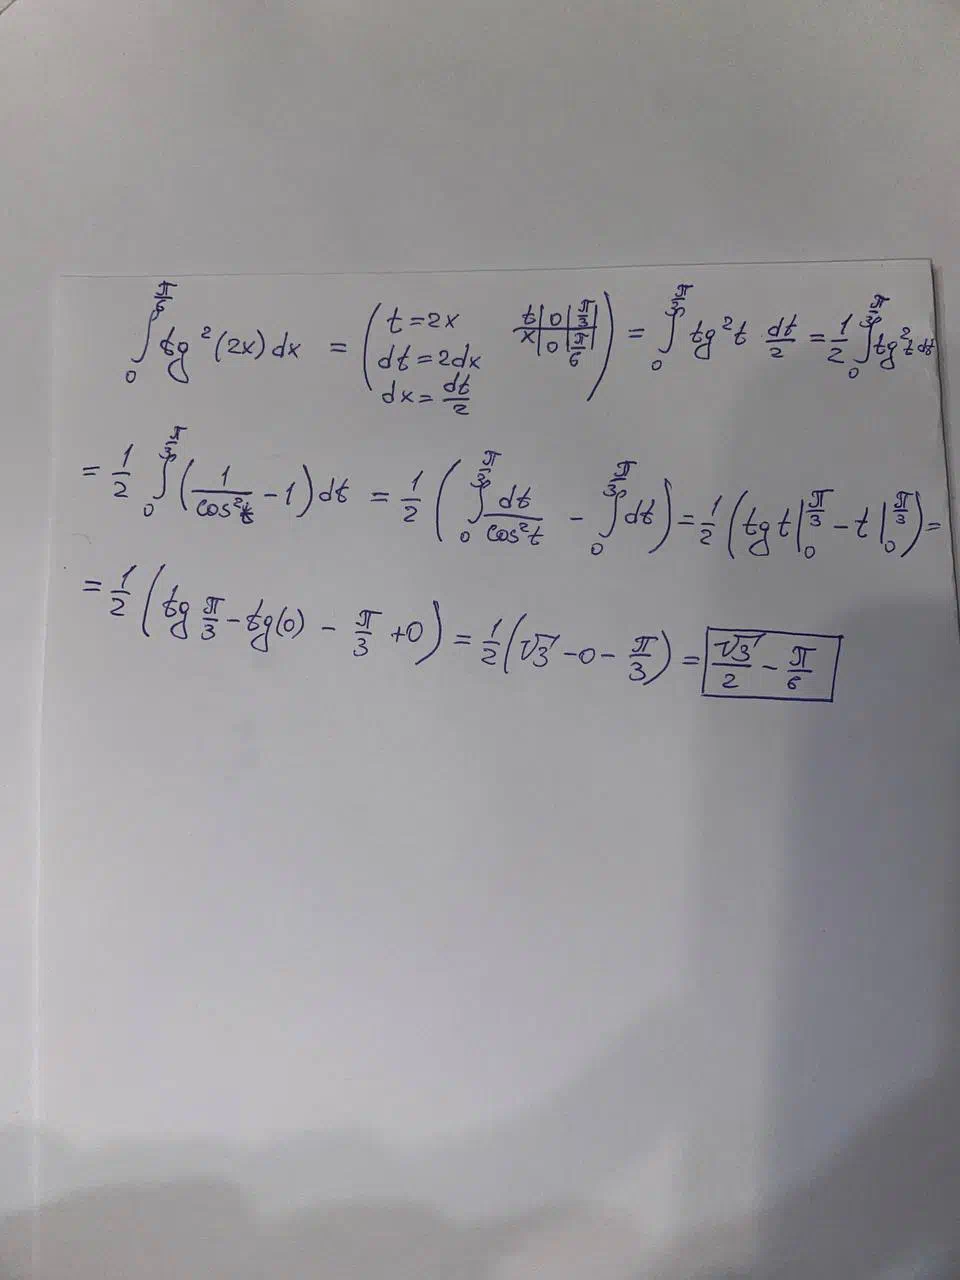 ∫₀^(π/6) tg²(2x)dx = (t=2x dt=2dx dx=dt/2 t|0|π/3 x|0|π/6) = ∫₀^(π/3) tg²t dt/2 = 1/2 ∫₀^(π/3) tg²t dt
= 1/2 ∫₀^(π/3) (1/cos²t − 1)dt = 1/2 (∫₀^(π/3) dt/cos²t − ∫₀^(π/3) dt) = 1/2 (tg t|₀^(π/3) − t|₀^(π/3)) =
= 1/2 (tg π/3 − tg(0) − π/3 + 0) = 1/2 (√3 − 0 − π/3) = √3/2 − π/6